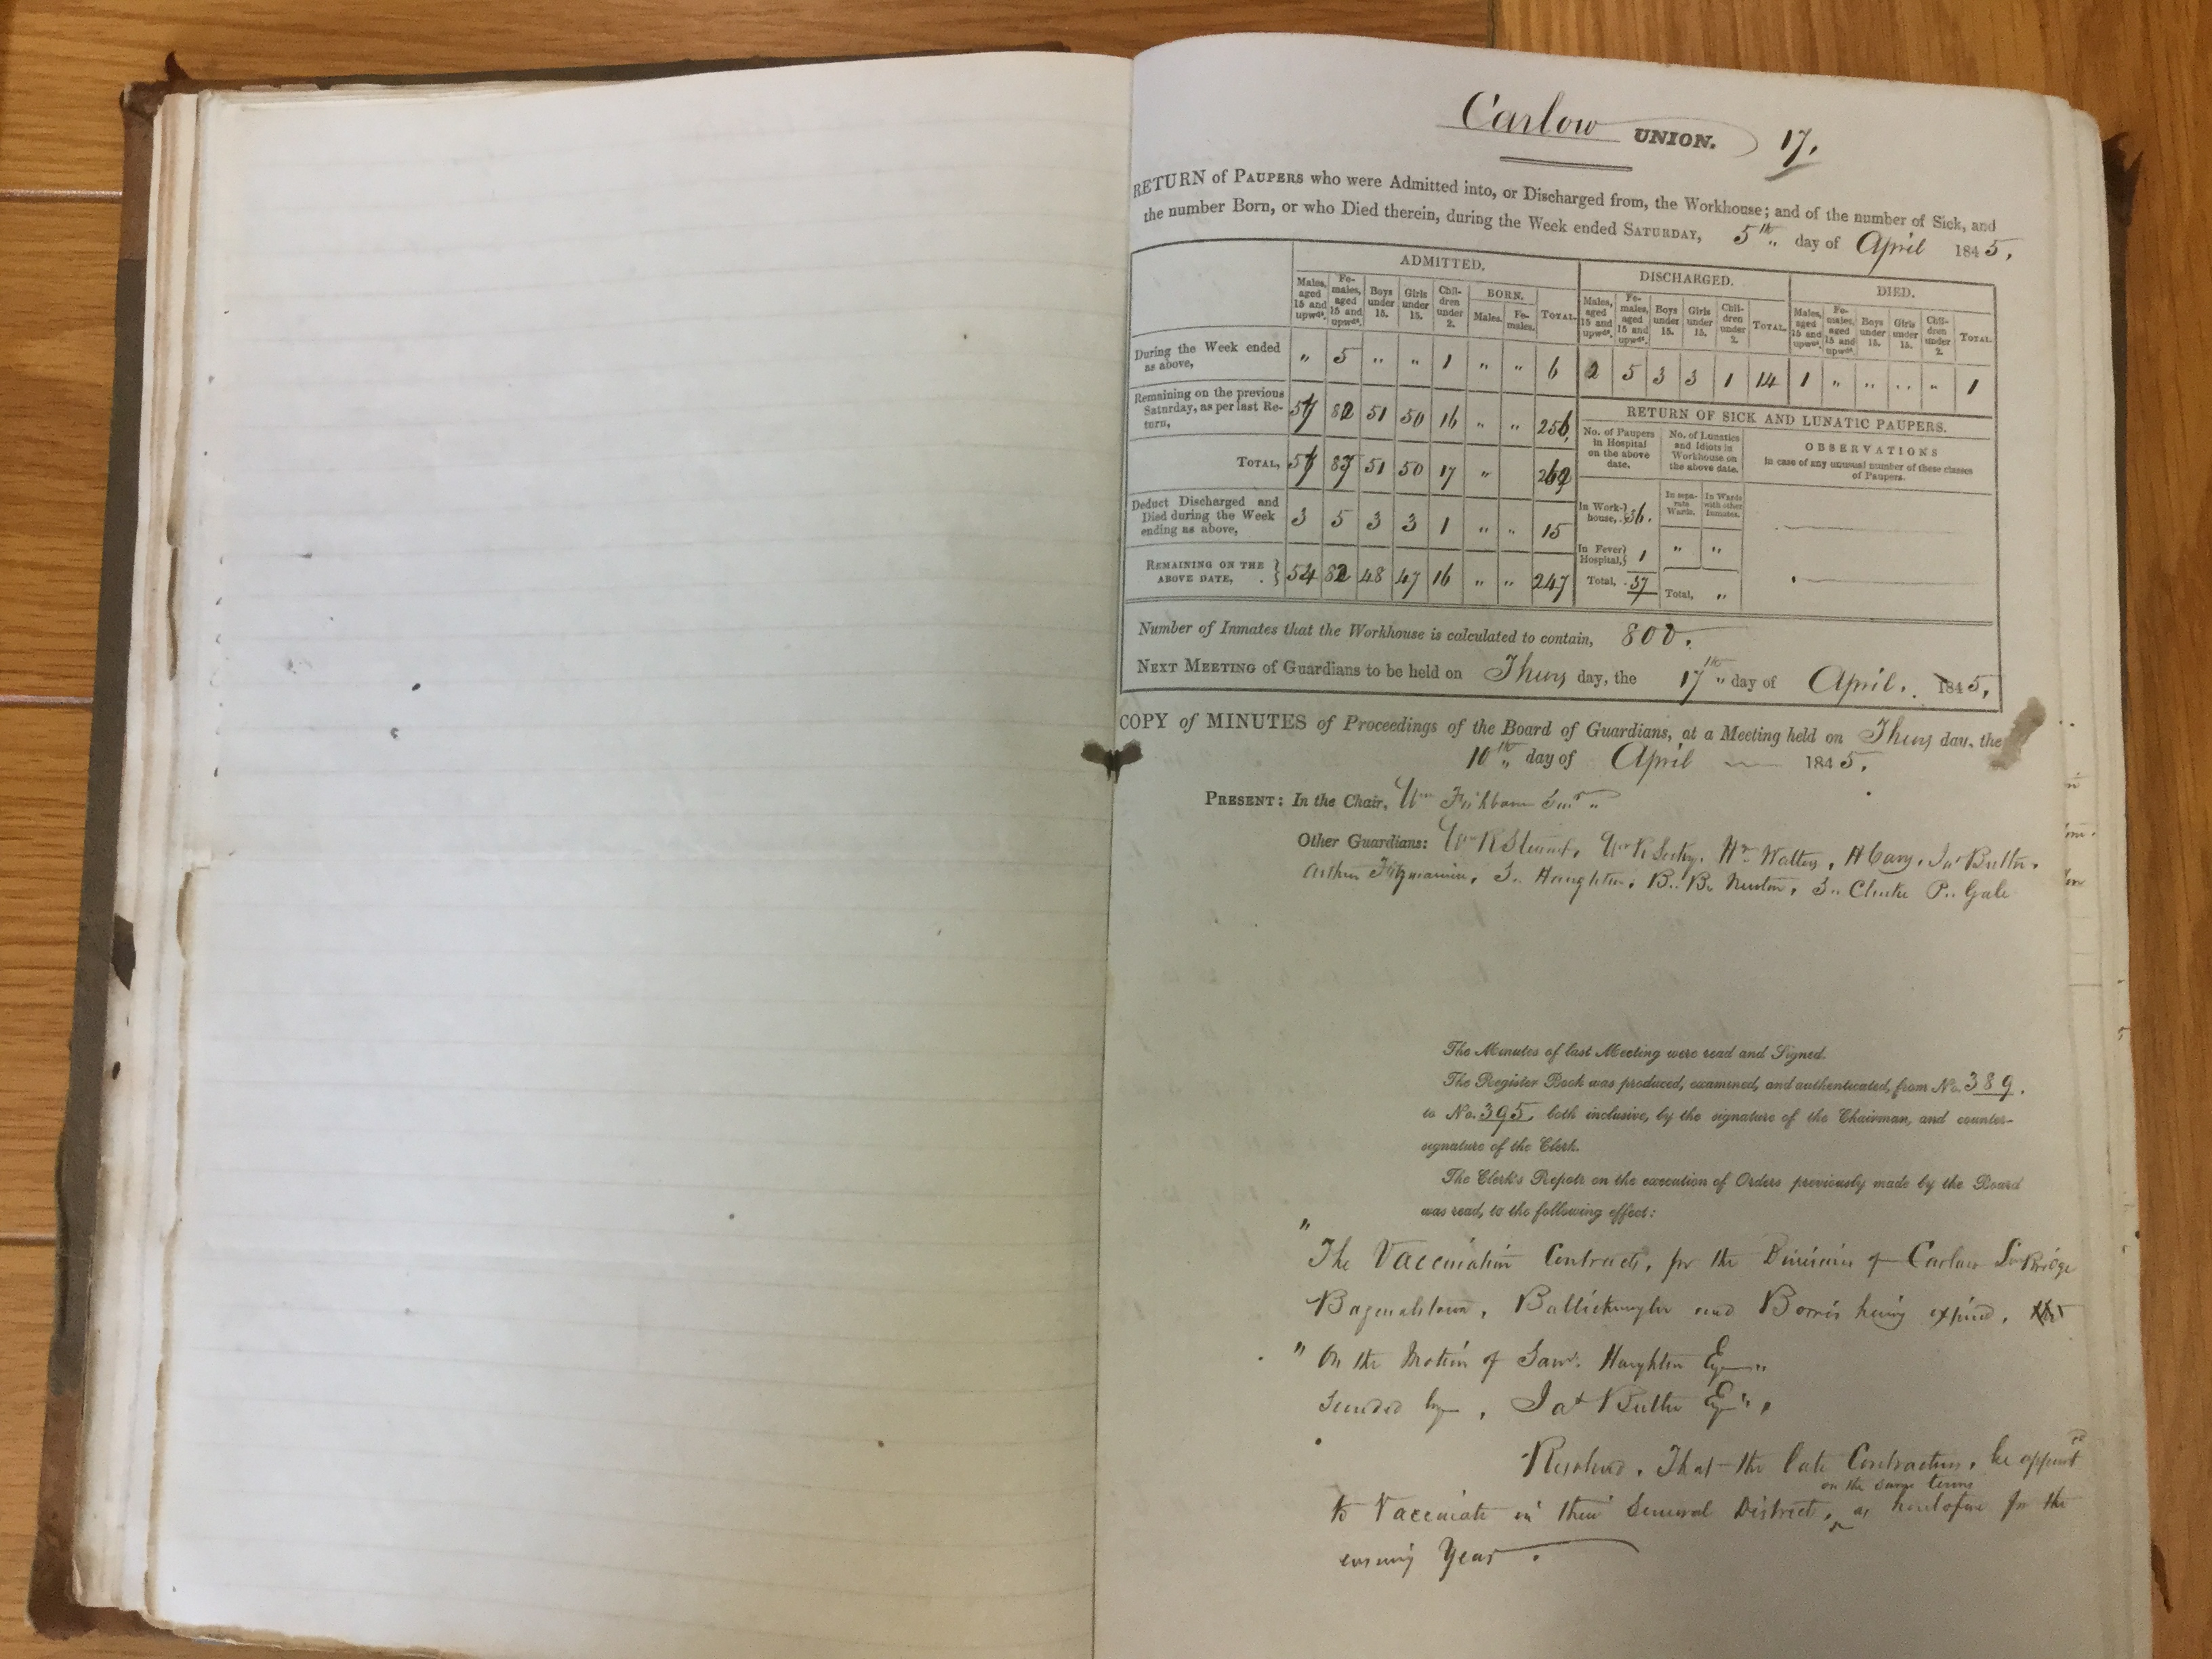 Carlow UNION. 17.
RETURN of PAUPERS who were Admitted into, or Discharged from, the Workhouse; and of the number of Sick, and
the number Born, or who Died therein, during the Week ended SATURDAY, 5th day of April 1845.
ADMITTED. DISCHARGED. DIED.
Males, aged 15 and upwds. Females, aged 15 and upwds. Boys under 15. Girls under 15. Children under 2. BORN. Males. Females. TOTAL. Males, aged 15 and upwds. Females, aged 15 and upwds. Boys under 15. Girls under 15. Children under 2. TOTAL. Males, aged 15 and upwds. Females, aged 15 and upwds. Boys under 15. Girls under 15. Children under 2. TOTAL.
During the Week ended as above, " 5 " " 1 " " 6 2 5 3 3 1 14 1 " " " " 1
Remaining on the previous Saturday, as per last Return, 57 82 51 50 16 " " 256
TOTAL, 57 87 51 50 17 " 262
Deduct Discharged and Died during the Week ending as above, 3 5 3 3 1 " " 15
REMAINING ON THE ABOVE DATE, 54 82 48 47 16 " " 247
RETURN OF SICK AND LUNATIC PAUPERS.
No. of Paupers in Hospital on the above date. No. of Lunatics and Idiots in Workhouse on the above date. OBSERVATIONS in case of any unusual number of these classes of Paupers.
In Workhouse, 36. In separate Wards. In Wards with other Inmates.
In Fever Hospital, 1 " "
Total, 37 Total, "
Number of Inmates that the Workhouse is calculated to contain, 800.
NEXT MEETING of Guardians to be held on Thurs day, the 17th day of April. 1845.
COPY of MINUTES of Proceedings of the Board of Guardians, at a Meeting held on Thurs day, the
10th day of April 1845.
PRESENT: In the Chair, Wm Fishbourne Senr
Other Guardians: Wm R Steuart, Hy Watters, H Cary, Jas Butler.
Arthur Fitzmaurice, S. Haughton, B. B. Newton, S. Clarke P. Gale
The Minutes of last Meeting were read and Signed.
The Register Book was produced, examined, and authenticated, from No. 389.
to No. 395, both inclusive, by the signature of the Chairman, and counter-
signature of the Clerk.
The Clerk's Report on the execution of Orders previously made by the Board
was read, to the following effect:
" The Vaccination Contracts, for the Divisions of Carlow LnBridge
Bagenalstown, Ballickmoyler and Borris being expired,
" On the Motion of Saml. Haughton Esqr
Seconded by, Jas Butler Esqr,
Resolved, That the late Contractors, be appointed
on the same terms
to Vaccinate in their Several District, as heretofore for the
ensuing Year.